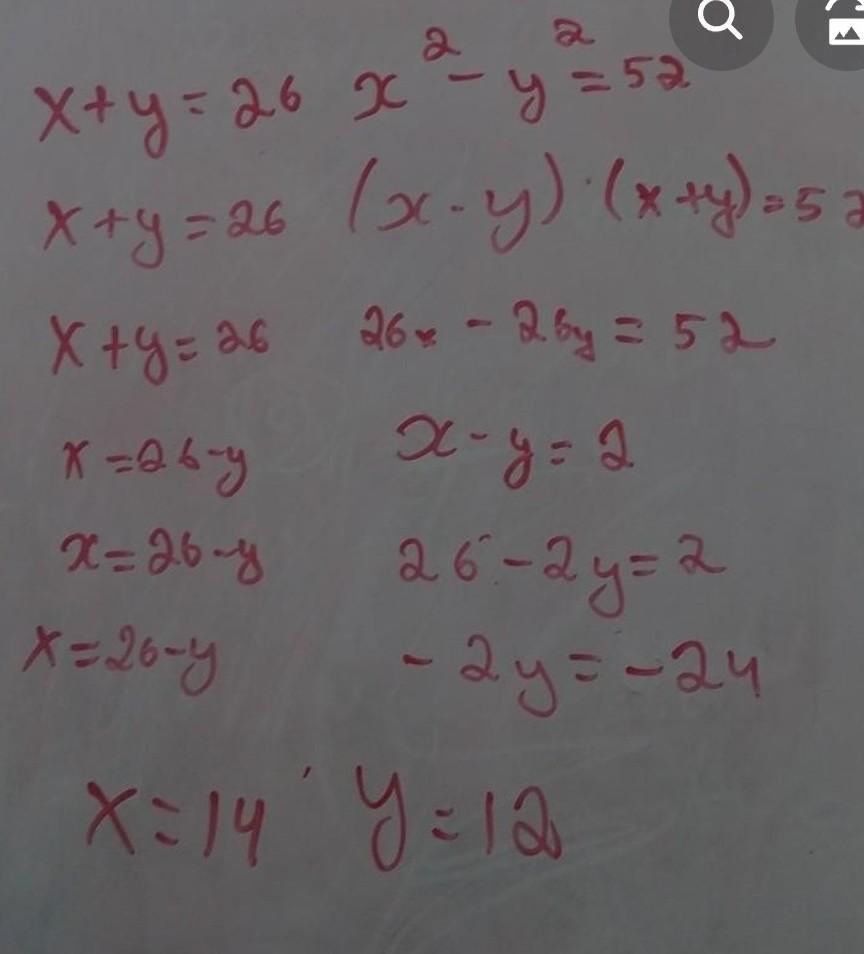 x+y=26 x²-y²=52
x+y=26 (x-y)·(x+y)=52
x+y=26 26x-26y=52
x=26-y x-y=2
x=26-y 26-2y=2
x=26-y -2y=-24
x=14 y=12